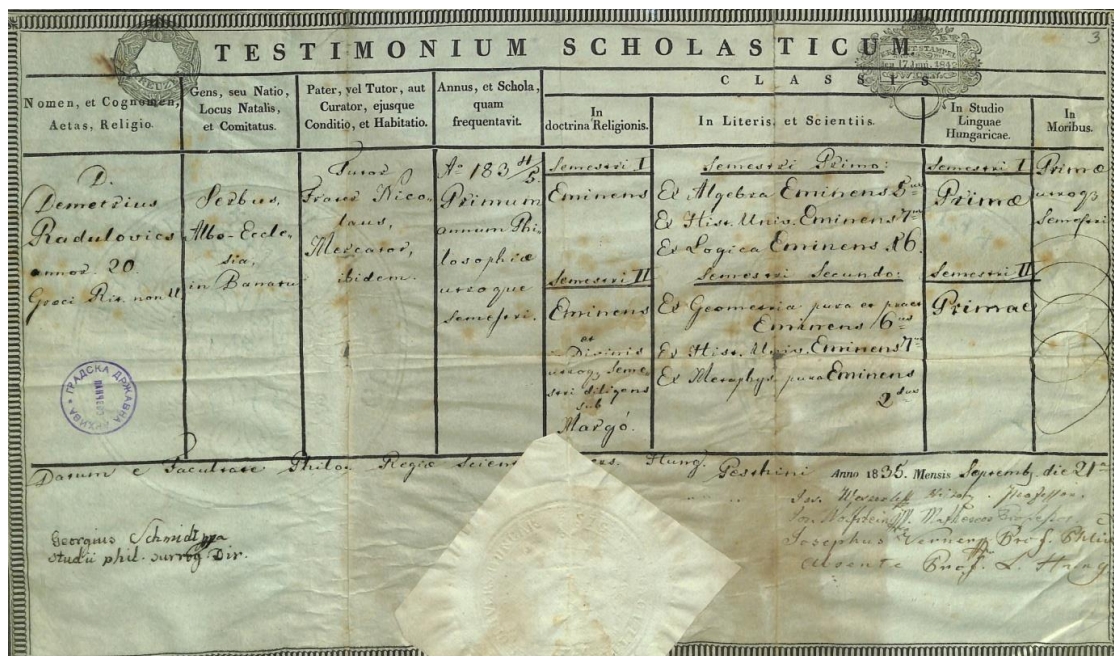 3
TESTIMONIUM SCHOLASTICUM
STAMPEL
den 17 Juni. 1840
CLASSIS
Nomen, et Cognomen,
Aetas, Religio.
Gens, seu Natio,
Locus Natalis,
et Comitatus.
Pater, vel Tutor, aut
Curator, ejusque
Conditio, et Habitatio.
Annus, et Schola,
quam
frequentavit.
In
doctrina Religionis.
In Literis, et Scientiis.
In Studio
Linguae
Hungaricae.
In
Moribus.
D.
Demetrius
Radulovics
annor. 20
Graeci Rit. non U
Serbus,
Albo-Eccle-
sia,
in Banatu
Tutor
Frater Nico-
laus,
Mercator,
ibidem.
Ao 183 4/5
Primum
annum Phi-
losophiae
utroque
Semestri.
Semestri I
Eminens
Semestri II
Eminens
et
Divinis
utroq Seme-
stri diligens
sub
Margó.
Semestri Primo:
Ex Algebra Eminens 5us
Ex Hist. Univ. Eminens 7us
Ex Logica Eminens 6
Semestri Secundo:
Ex Geometria pura et pract
Eminens 6us
Ex Hist. Univ. Eminens 7us
Ex Metaphys. pura Eminens
2dus
Semestri I
Primae
Semestri II
Primae
Primae
utroq
Semestri
ГРАДСКА ДРЖАВНА АРХИВА
Datum e Facultate Philos. Regiae Scient. Univers. Hung. Pesthini Anno 1835. Mensis Septemb. die 21a
Georgius Schmidt
studii phil. surrog Dir.
Professor
Josephus Verner Prof. Philos
absente Prof. L. Hung